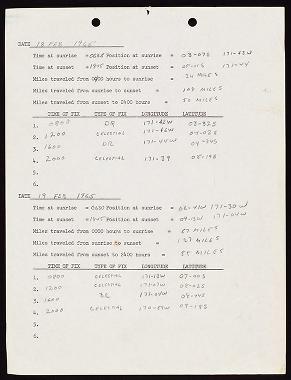 DATE 18 FEB 1965
Time at sunrise = 0625 Position at sunrise = 03-07S 171-43W
Time at sunset = 1845 Position at sunset = 171-44
Miles traveled from 0000 hours to sunrise = 34 MILES
Miles traveled from sunrise to sunset = 108 MILES
Miles traveled from sunset to 2400 hours = 50 MILES
TIME OF FIX TYPE OF FIX LONGITUDE LATITUDE
1. 0800 DR 171-42W 03-32S
2. 1200 CELESTIAL 171-46W 04-02S
3. 1600 DR 171-44W 04-34S
4. 2000 CELESTIAL 171-39 05-19S
5.
6.
DATE 19 FEB 1965
Time at sunrise = 0630 Position at sunrise = 171-30W
Time at sunset = 1845 Position at sunset = 171-04W
Miles traveled from 0000 hours to sunrise = 57 MILES
Miles traveled from sunrise to sunset = 127 MILES
Miles traveled from sunset to 2400 hours = 55 MILES
TIME OF FIX TYPE OF FIX LONGITUDE LATITUDE
1. 0800 CELESTIAL 171-13W 07-00S
2. 1200 CELESTIAL 171-07W 08-02S
3. 1600 DR 171-04W
4. 2000 CELESTIAL 09-19S
5.
6.